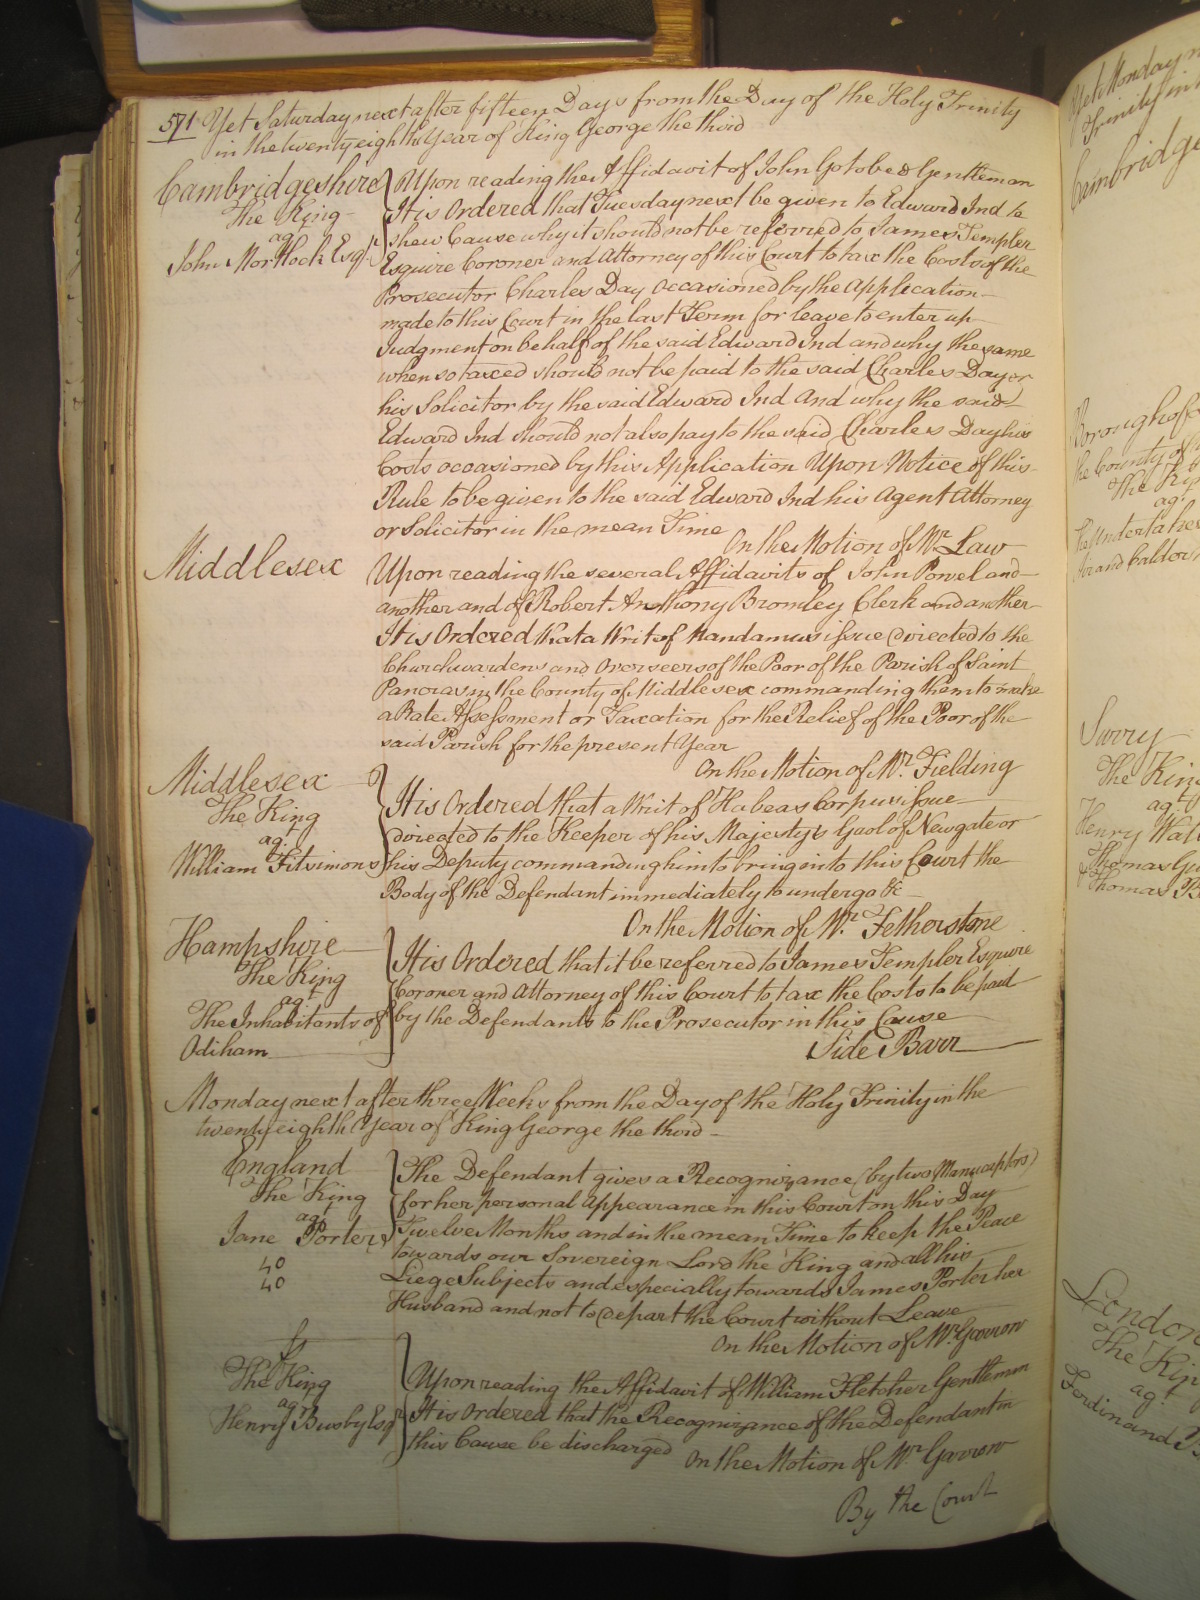 571 Yet Saturday next after fifteen Days from the Day of the Holy Trinity
in the twenty eighth Year of King George the third
Cambridgeshire
The King
agt
John Mortlock Esqr
Upon reading the Affidavit of John Gotobed Gentleman
It is Ordered that Tuesday next be given to Edward Ind to
shew Cause why it should not be referred to James Templer
Esquire Coroner and Attorney of this Court to tax the Costs of the
Prosecutor Charles Day occasioned by the Application
made to this Court in the last Term for leave to enter up
Judgment on behalf of the said Edward Ind and why the same
when so taxed should not be paid to the said Charles Day or
his Solicitor by the said Edward Ind And why the said
Edward Ind should not also pay to the said Charles Day his
Costs occasioned by this Application Upon Notice of this
Rule to be given to the said Edward Ind his Agent Attorney
or Solicitor in the mean Time
On the Motion of Mr Law
Middlesex
Upon reading the several Affidavits of John Powel and
another and of Robert Anthony Bromley Clerk and another
It is Ordered that a Writ of Mandamus issue directed to the
Churchwardens and Overseers of the Poor of the Parish of Saint
Pancras in the County of Middlesex commanding them to make
a Rate Assessment or Taxation for the Relief of the Poor of the
said Parish for the present Year
On the Motion of Mr. Fielding
Middlesex
The King
agt
William Fitsimons
It is Ordered that a Writ of Habeas Corpus issue
directed to the Keeper of his Majesty's Gaol of Newgate or
his Deputy commanding him to bring into this Court the
Body of the Defendant immediately to undergo &c
On the Motion of Mr. Fetherstone
Hampshire
The King
agt
The Inhabitants of
Odiham
It is Ordered that it be referred to James Templer Esquire
Coroner and Attorney of this Court to tax the Costs to be paid
by the Defendants to the Prosecutor in this Cause
Side Barr
Monday next after three Weeks from the Day of the Holy Trinity in the
twenty eighth Year of King George the third
England
The King
agt
Jane Porter
40
40
The Defendant gives a Recognizance (by two Manucaptors)
for her personal Appearance in this Court on this Day
Twelve Months and in the mean Time to keep the Peace
towards our Sovereign Lord the King and all his
Liege Subjects and especially towards James Porter her
Husband and not to depart the Court without Leave
On the Motion of Mr Garrow
The King
agt
Henry Busby Esqr
Upon reading the Affidavit of William Fletcher Gentleman
It is Ordered that the Recognizance of the Defendant in
this Cause be discharged
On the Motion of Mr Garrow
By the Court
Yet Monday
Trinity in
Cambridge
Borough of
the County of
The Kin
agt
The Undertakers
Surry
The King
agt
Henry Wat
Thomas
& Thomas
London
The Kin
agt
Ferdinand